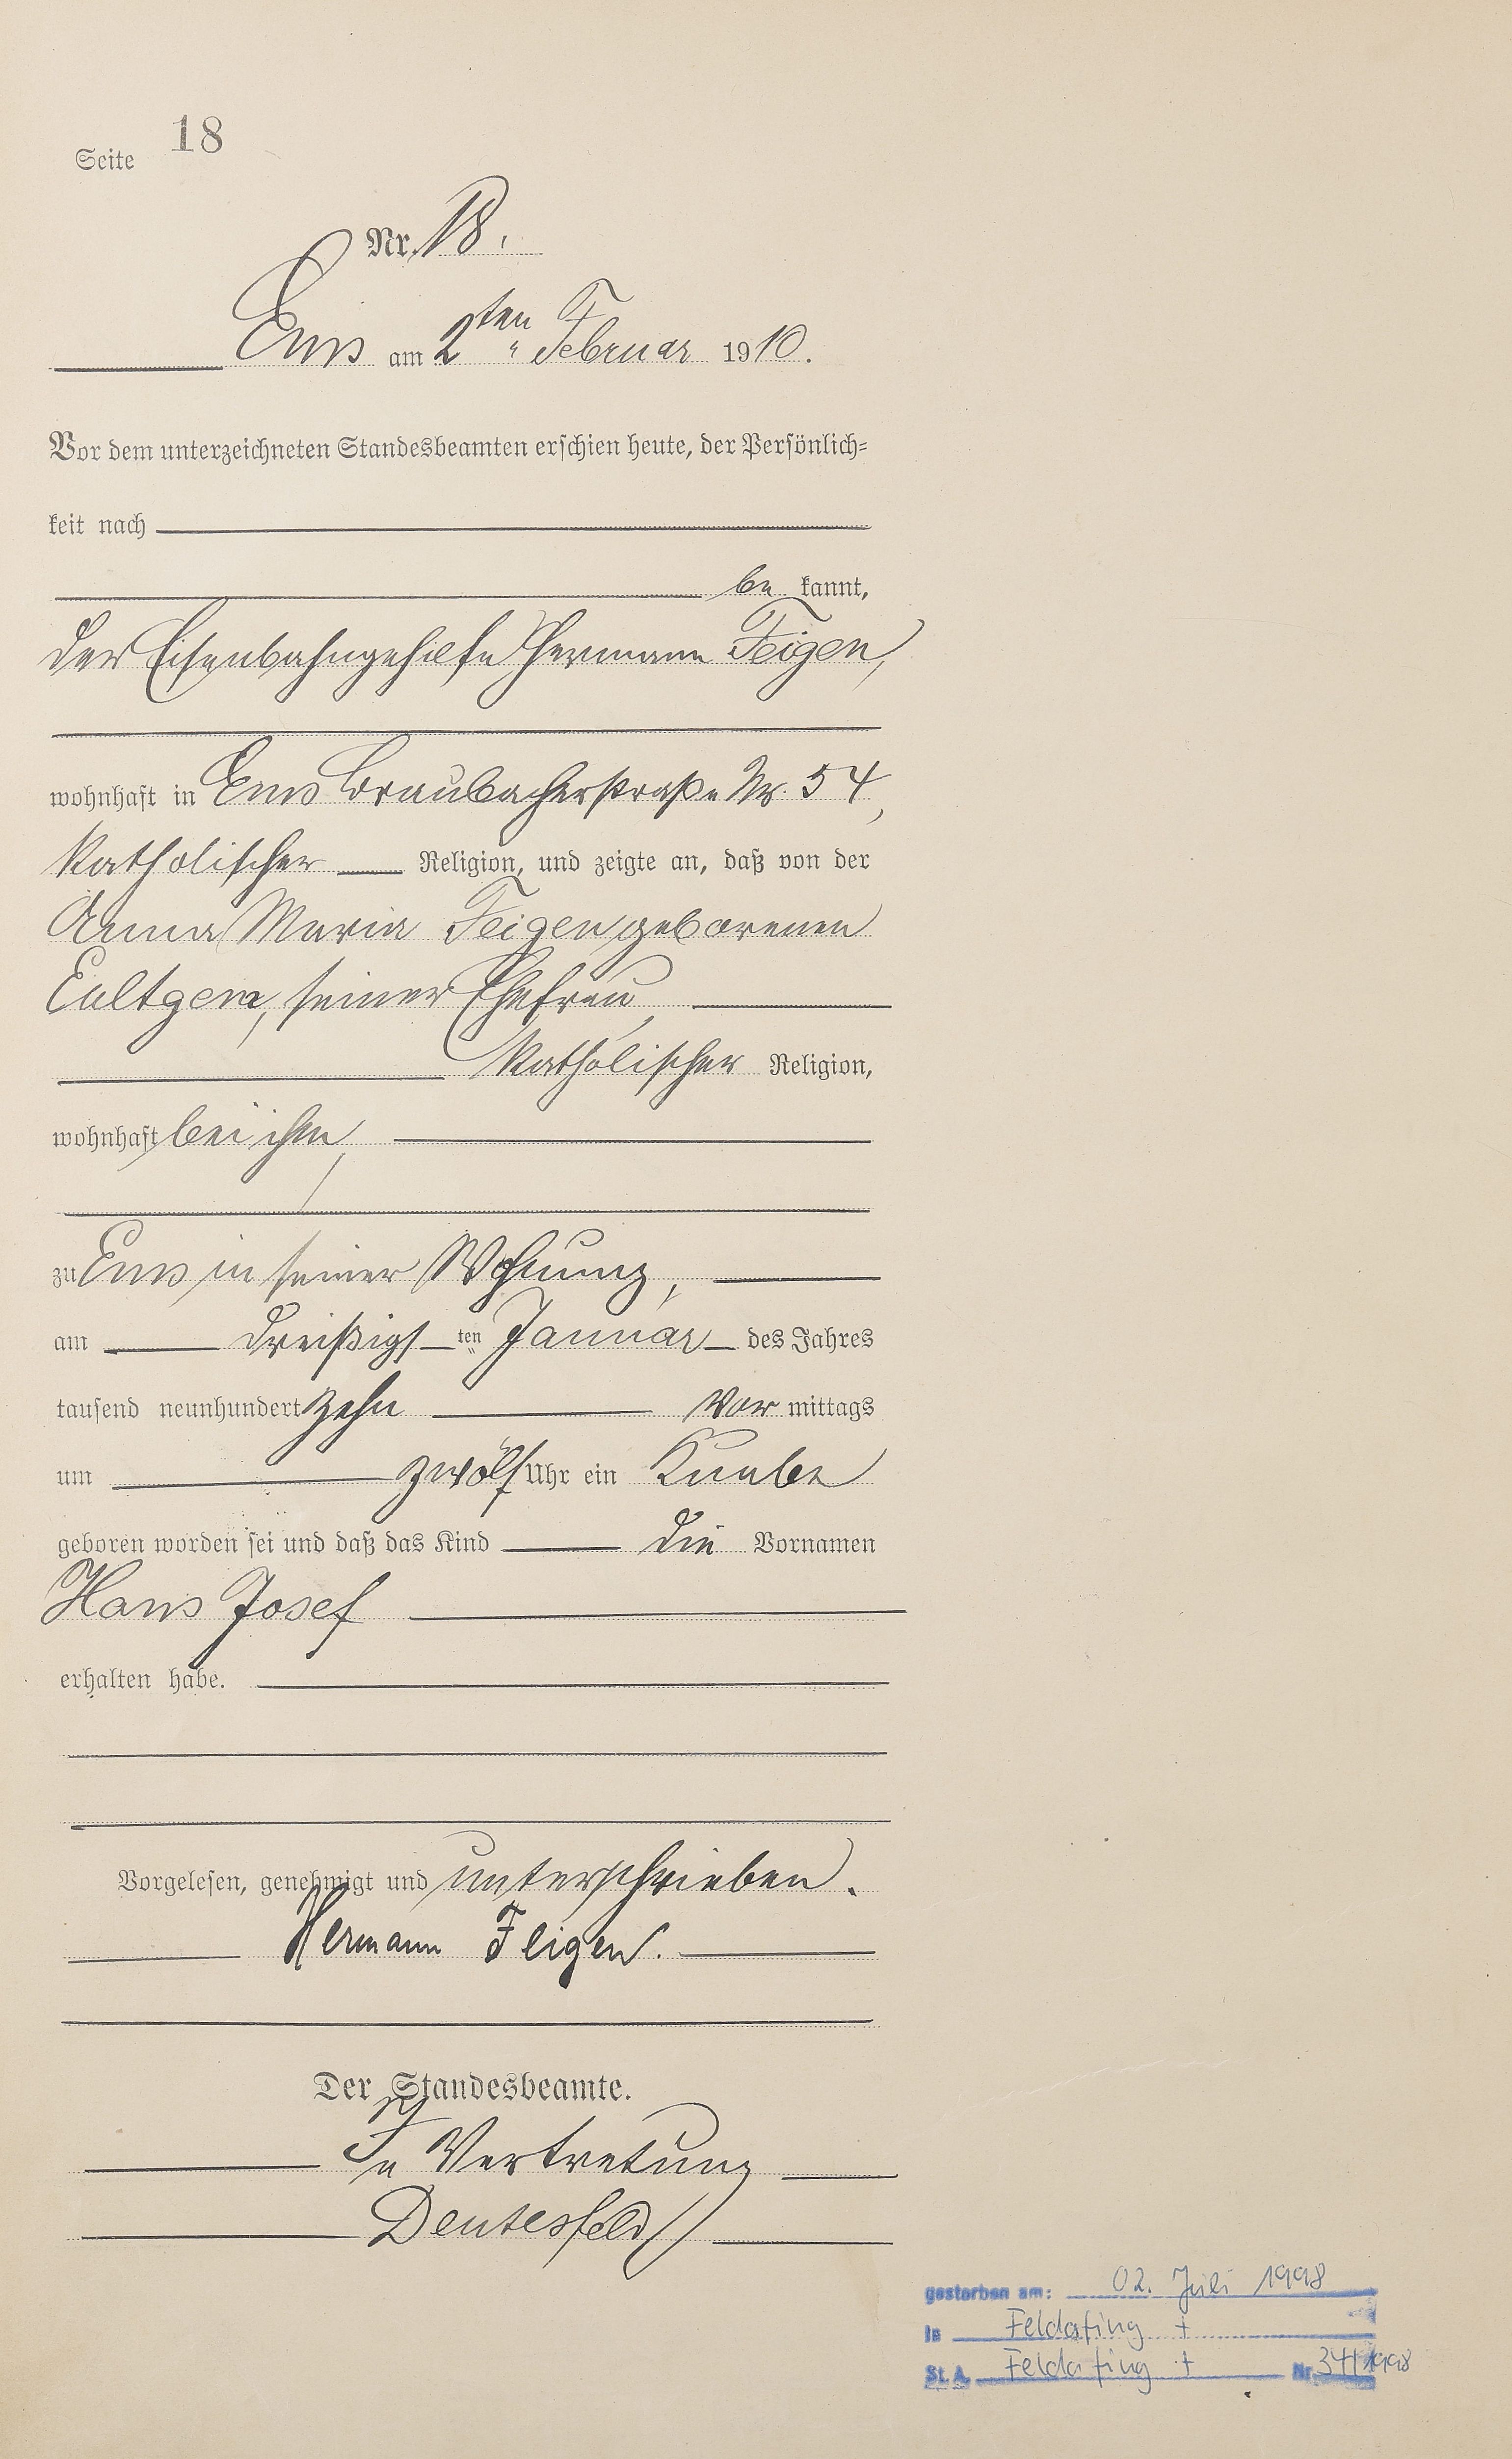 Seite 18
Nr. 18.
Ems am 2ten Februar 1910.
Vor dem unterzeichneten Standesbeamten erschien heute, der Persönlich-
keit nach
be kannt,
der Eisenbahngehilfe Hermann Feigen,
wohnhaft in Ems Braubacherstraße Nr. 54,
katholischer Religion, und zeigte an, daß von der
Anna Maria Feigen geborenen
Eultgem, seiner Ehefrau,
katholischer Religion,
wohnhaft bei ihm,
zu Ems in seiner Wohnung,
am dreißigsten Januar des Jahres
tausend neunhundert zehn Vor mittags
um zwölf Uhr ein Knabe
geboren worden sei und daß das Kind die Vornamen
Hans Josef
erhalten habe.
Vorgelesen, genehmigt und unterschrieben.
Hermann Feigen.
Der Standesbeamte.
In Vertretung
Deutesfeld
gestorben am: 02. Juli 1998
in Feldafing
St. A. Feldafing Nr. 34/1998